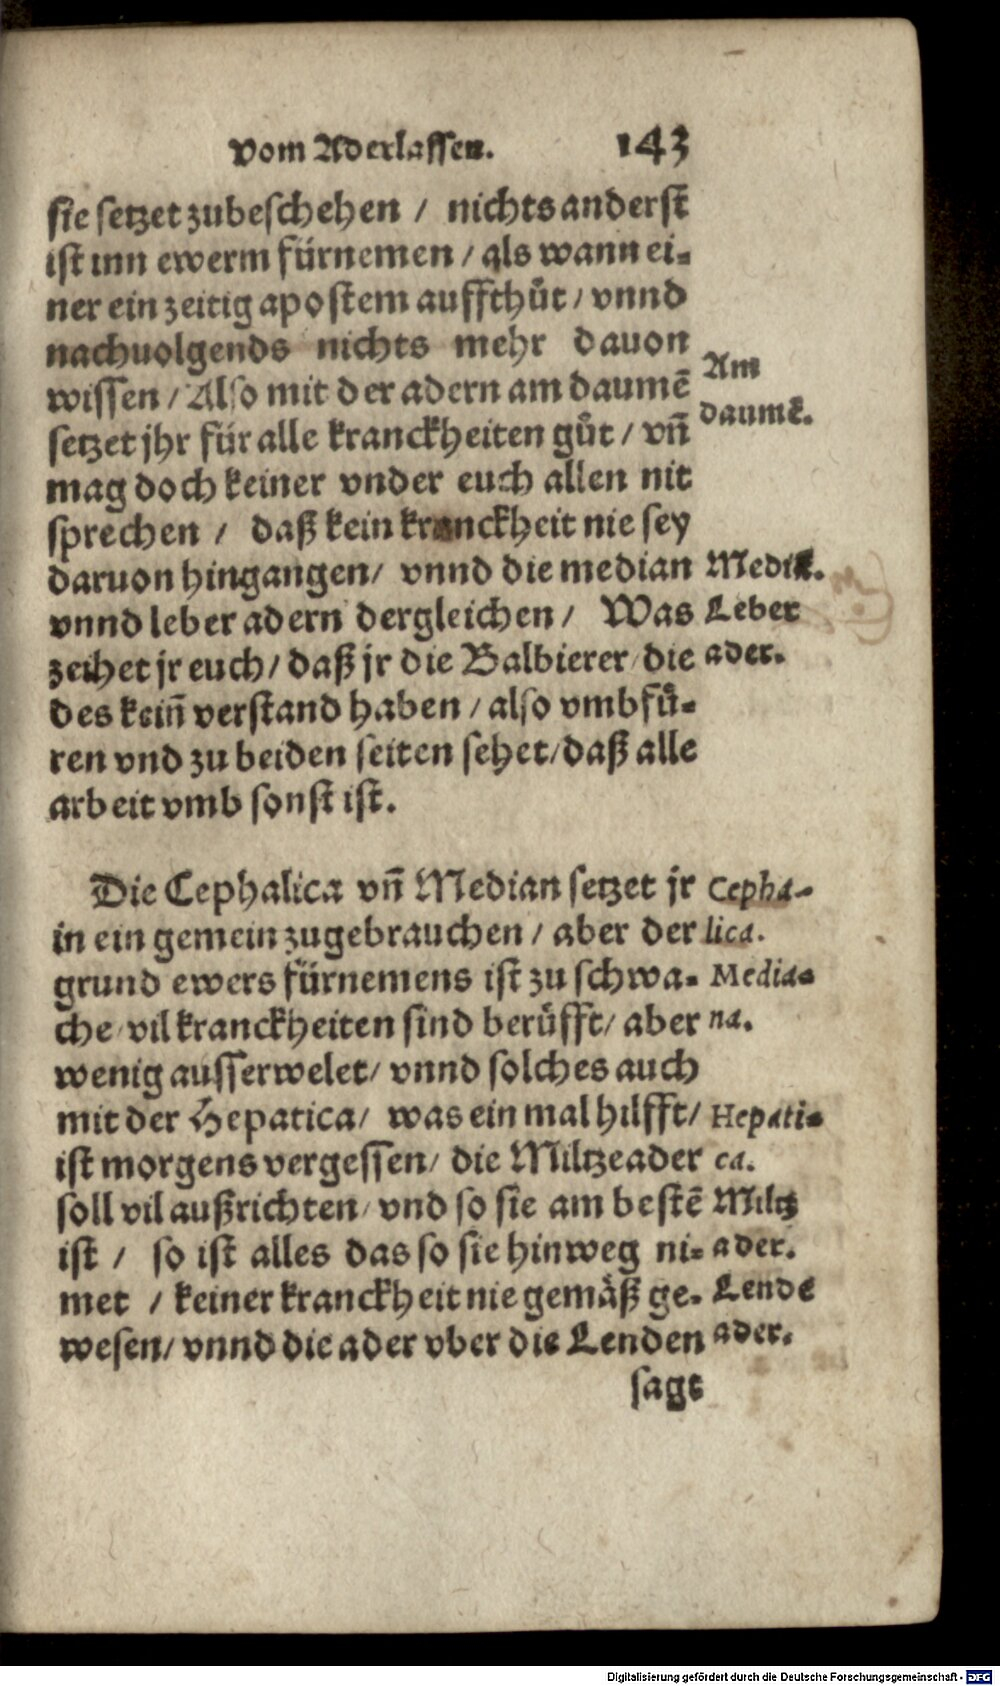 Vom Aderlassen. 143
sie setzet zubeschehen / nichts anderst
ist inn ewerm fürnemen / als wann ei-
ner ein zeitig apostem auffthůt / vnnd
nachuolgends nichts mehr dauon
wissen / Also mit der adern am daumē
Am
daumē.
setzet jhr für alle kranckheiten gůt / vñ
mag doch keiner vnder euch allen nit
sprechen / daß kein kranckheit nie sey
daruon hingangen / vnnd die median
Mediā.
vnnd leber adern dergleichen / Was
Leber
zeihet jr euch / daß jr die Balbierer / die
ader.
des keiñ verstand haben / also vmbfü-
ren vnd zu beiden seiten sehet / daß alle
arbeit vmb sonst ist.
Die Cephalica vñ Median setzet jr
Cepha-
in ein gemein zugebrauchen / aber der
lica.
grund ewers fürnemens ist zu schwa-
Media-
che / vil kranckheiten sind berüfft / aber
na.
wenig ausserwelet / vnnd solches auch
mit der Hepatica / was ein mal hilfft /
Hepati-
ist morgens vergessen / die Miltzeader
ca.
soll vil außrichten / vnd so sie am bestē
Miltz
ist / so ist alles das so sie hinweg ni-
ader.
met / keiner kranckheit nie gemäß ge-
Lende
wesen / vnnd die ader vber die Lenden
ader.
sagt
Digitalisierung gefördert durch die Deutsche Forschungsgemeinschaft - DFG